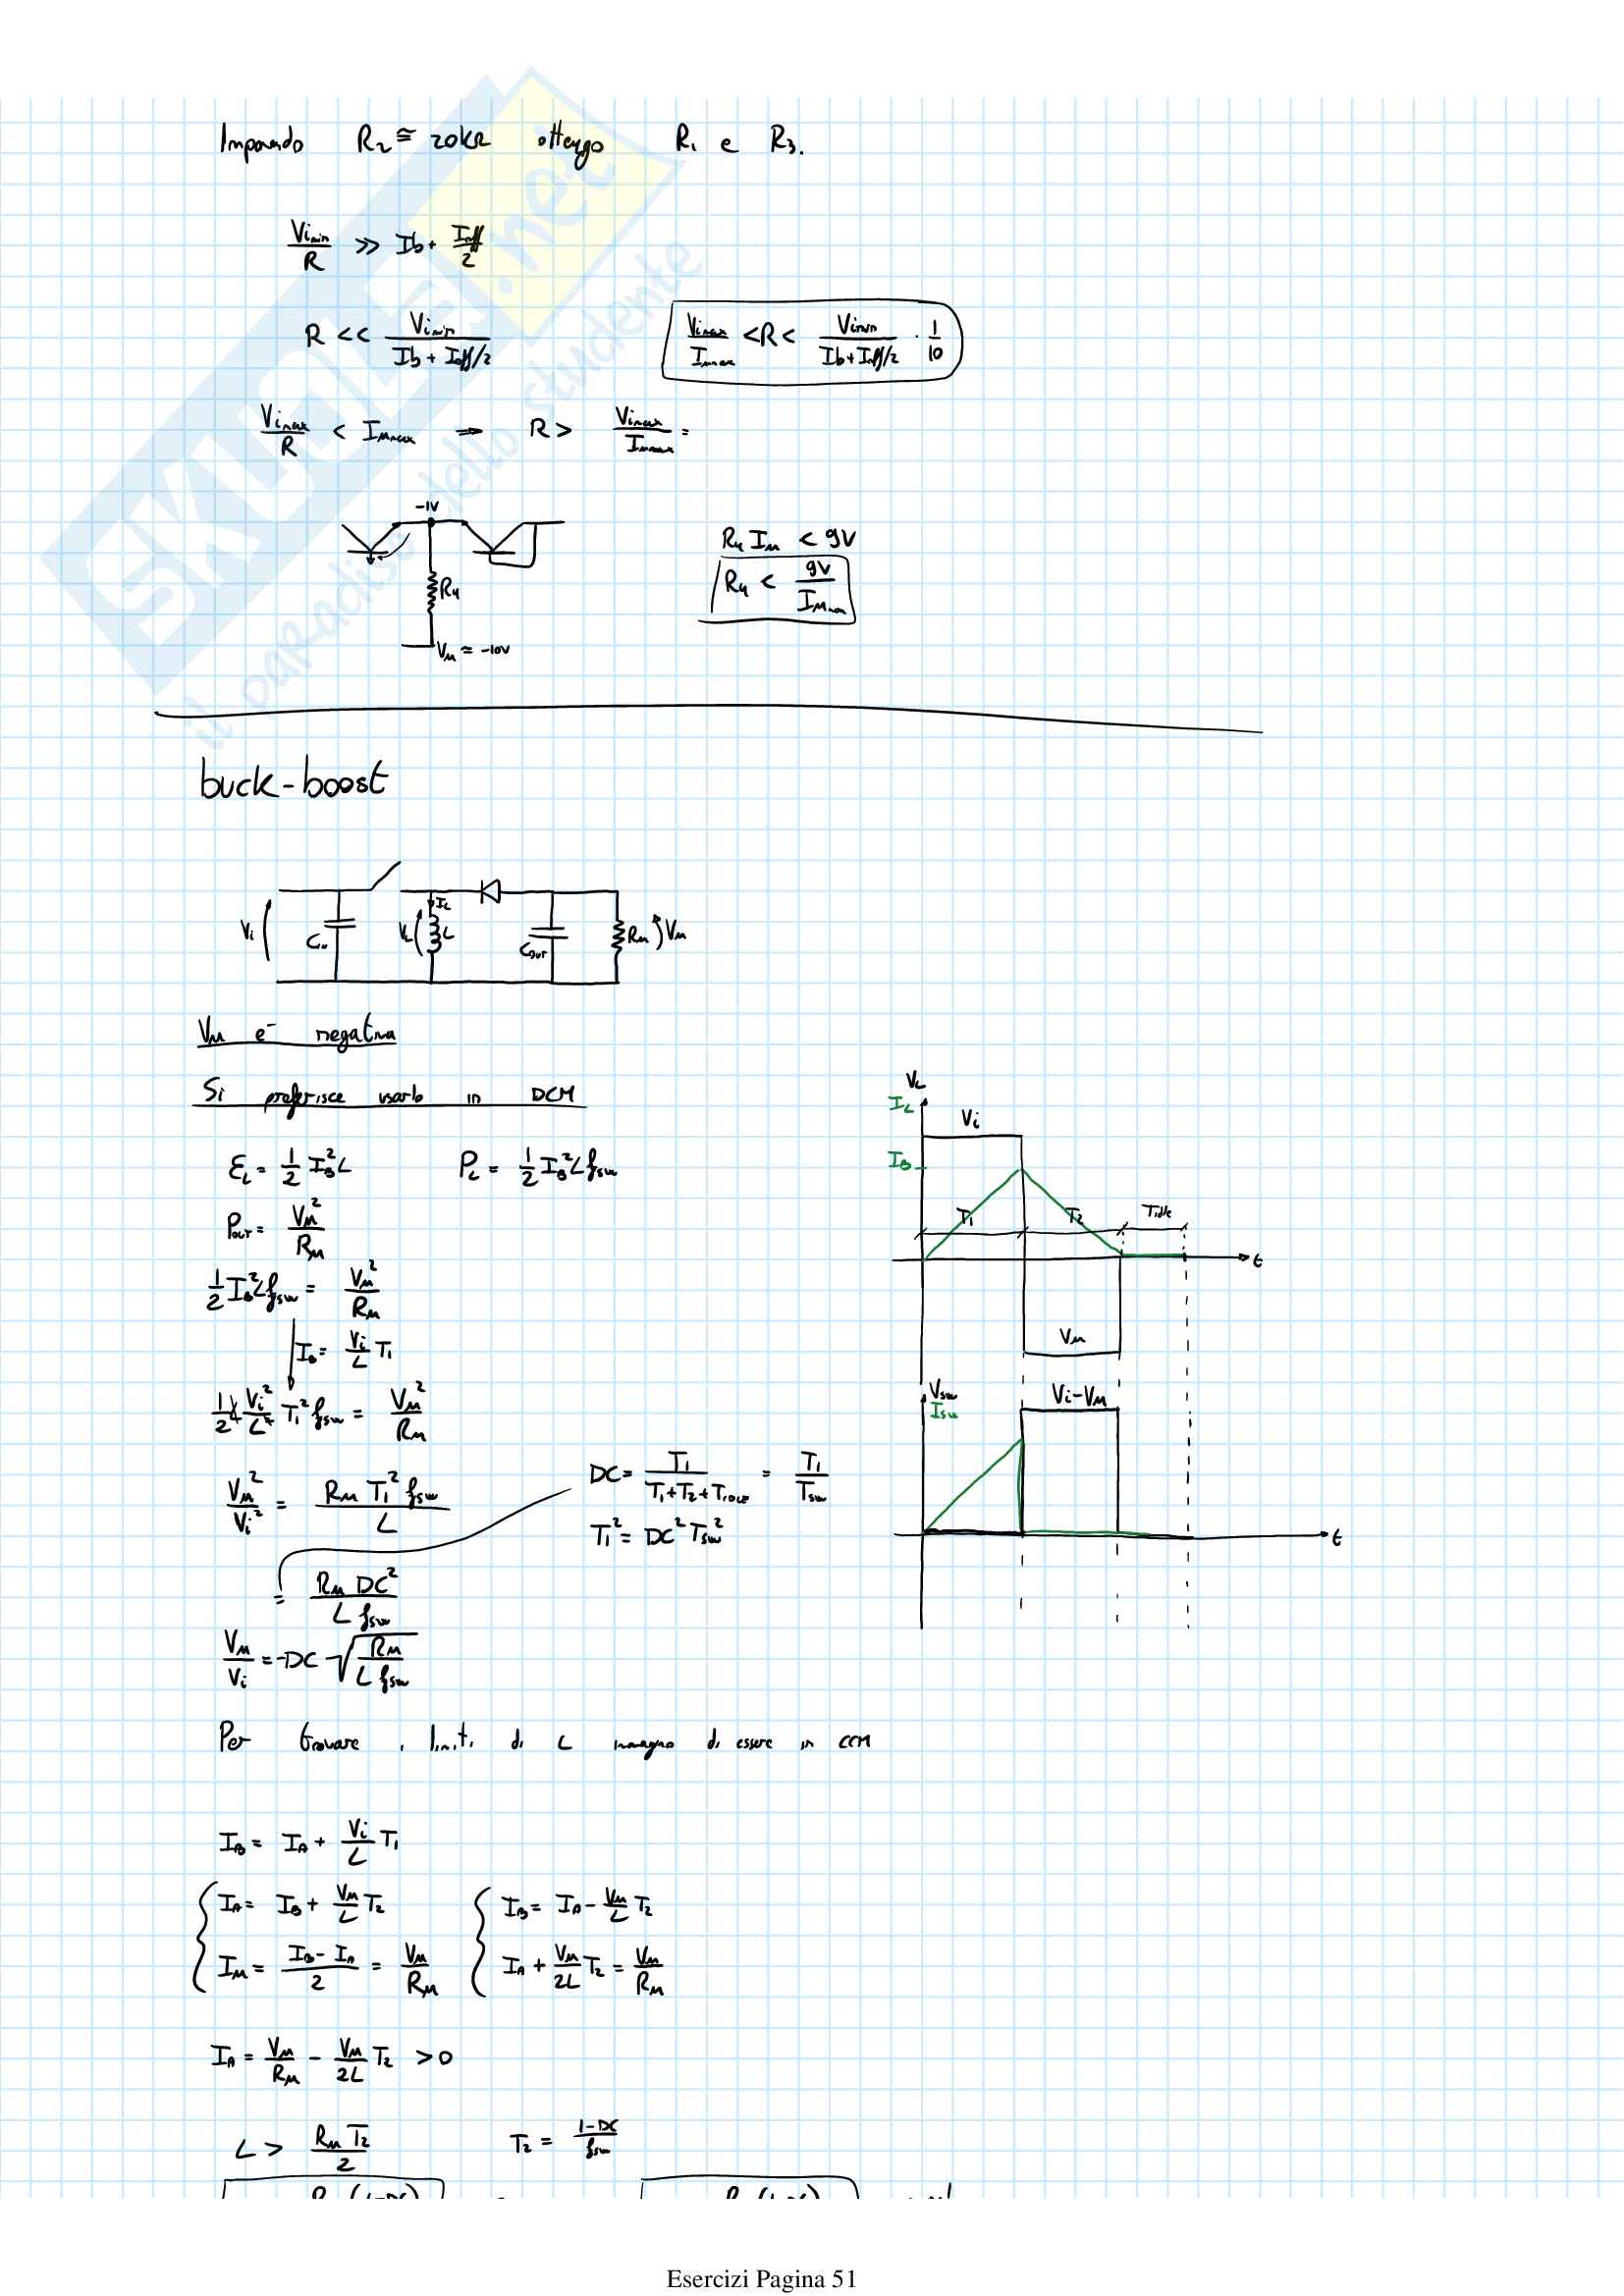 Imponendo R₂ ≅ 20kΩ ottengo R₁ e R₃.
Vimin/R >> Ib + Ioff/2
R << Vimin/(Ib + Ioff/2)
Vimax/Iumax < R < Vimin/(Ib + Ioff/2) · 1/10
Vimax/R < Iumax ⇒ R > Vimax/Iumax =
-1V
R₄
Vu ≃ -10V
R₄ Iu < 9V
R₄ < 9V/Iumax
buck-boost
Vi Cin VL IL L Cout Ru Vu
Vu e' negativa
Si preferisce usarlo in DCM
εL = 1/2 IB² L PL = 1/2 IB² L fsw
Pout = Vu²/Ru
1/2 IB² L fsw = Vu²/Ru
IB = Vi/L T₁
1/2 L Vi²/L² T₁² fsw = Vu²/Ru
Vu²/Vi² = Ru T₁² fsw/L
DC = T₁/(T₁+T₂+Tidle) = T₁/Tsw
T₁² = DC² Tsw²
= Ru DC²/(L fsw)
Vu/Vi = -DC √(Ru/(L fsw))
VL
IL
Vi
IB
T₁ T₂ Tidle
t
Vu
Vsw
Isw
Vi-Vu
t
Per trovare i limiti di L immagino di essere in CCM
IB = IA + Vi/L T₁
IA = IB + Vu/L T₂
Iu = (IB - IA)/2 = Vu/Ru
IB = IA - Vu/L T₂
IA + Vu/2L T₂ = Vu/Ru
IA = Vu/Ru - Vu/2L T₂ > 0
L > Ru T₂/2 T₂ = (1-DC)/fsw
Esercizi Pagina 51
SKUOLA.net
il paradiso dello studente